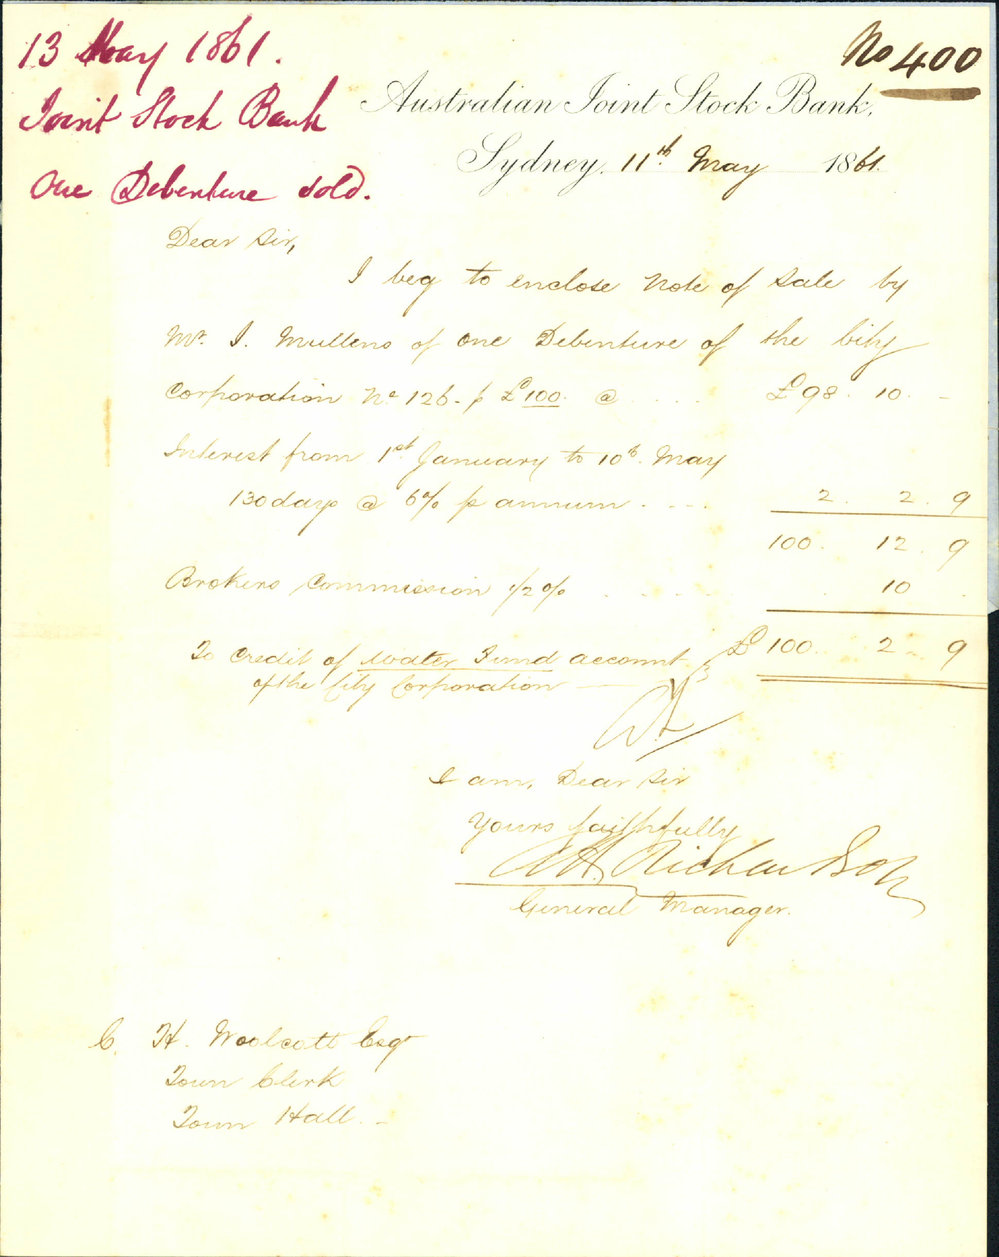 13 May 1861.
Joint Stock Bank
One Debenture sold.
No 400
Australian Joint Stock Bank,
Sydney, 11th May 1861
Dear Sir,
I beg to enclose Note of Sale by
Mr. J. Mullens of one Debenture of the City
Corporation No 126 - p £100 @ .... £98. 10. -
Interest from 1st January to 10th May
130 days @ 6% p annum .... 2. 2. 9
100. 12. 9
Brokers Commission 1/2 % .... 10 .
To Credit of Water Fund account £ 100. 2. 9
of the City Corporation
I am, Dear Sir
Yours faithfully
A H Richardson
General Manager.
C. H. Woolcott Esqr
Town Clerk
Town Hall. -